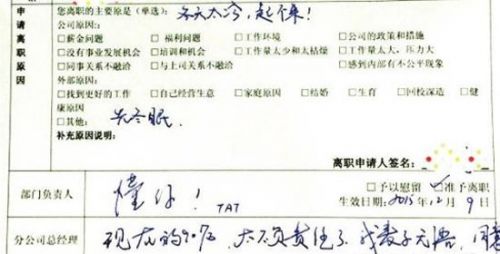 申请离职原因
您离职的主要原是(单选): 冬天太冷,起不来!
公司原因:
□薪金问题 □福利问题 □工作环境 □公司的政策和措施
□没有事业发展机会 □培训和机会 □工作量太少和太枯燥 □工作量太大、压力大
□同事关系不融洽 □与上司关系不融洽 □感到内部有不公平现象
外部原因:
□找到更好的工作 □自己经营生意 □家庭原因 □结婚 □生育 □回校深造 □健
康原因
□其他: 去冬眠.
补充原因说明:
离职申请人签名:
部门负责人 懂你! TAT □予以慰留 □准予离职
生效日期: 2015年12月9日
分公司总经理 现在的90后,太不负责任了,我表示无语,同意